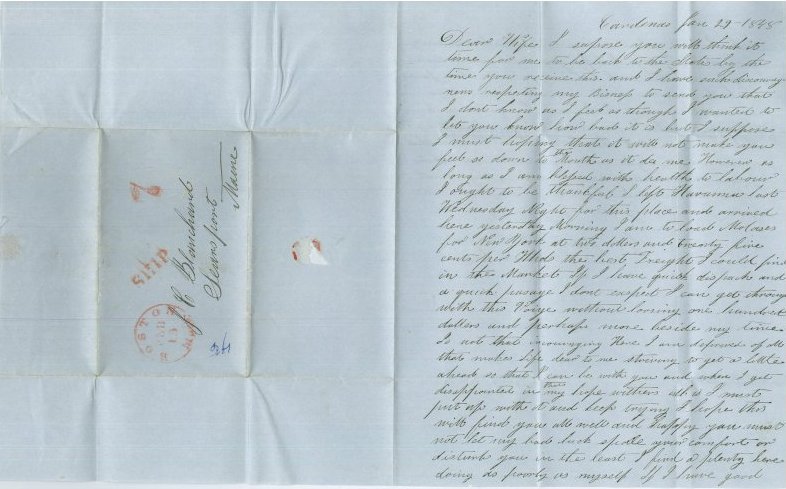 Cardenas Jan 29 - 1848
Dear Wife I supose you will think it
time for me to be back to the States by the
time you receive this and I have such discouraging
news respecting my Bisness to send you that
I dont know as I feel as though I wanted to
let you know how bad it is but I suppose
I must hoping that it will not make you
feel as down to the Mouth as it dos me However as
long as I am blessed with health to labour
I ought to be thankful I left Havanna last
Wednesday Night for this place and arrived
here yesterday Morning I am to load Molases
for New York at two dollars and twenty five
cents per Hhds the best Freight I could find
in the Market If I have quick dispach and
a quick pasage I dont expect I can get through
with this Voige without loosing one hundred
dollars and perhaps more beside my time
Is not that incouraging Here I am deprived of all
that makes life dear to me striving to get a little
ahead so that I can be with you and when I get
disappointed in my hope withers all is I must
put up with it and keep trying I hope this
will find you all well and Happy you must
not let my bad luck spoile your comfort or
disturb you in the least I find a plenty here
doing as poorly as myself If I have good
7
SHIP
BOSTON
15
MASS
C Blanchard
Searsport
Maine